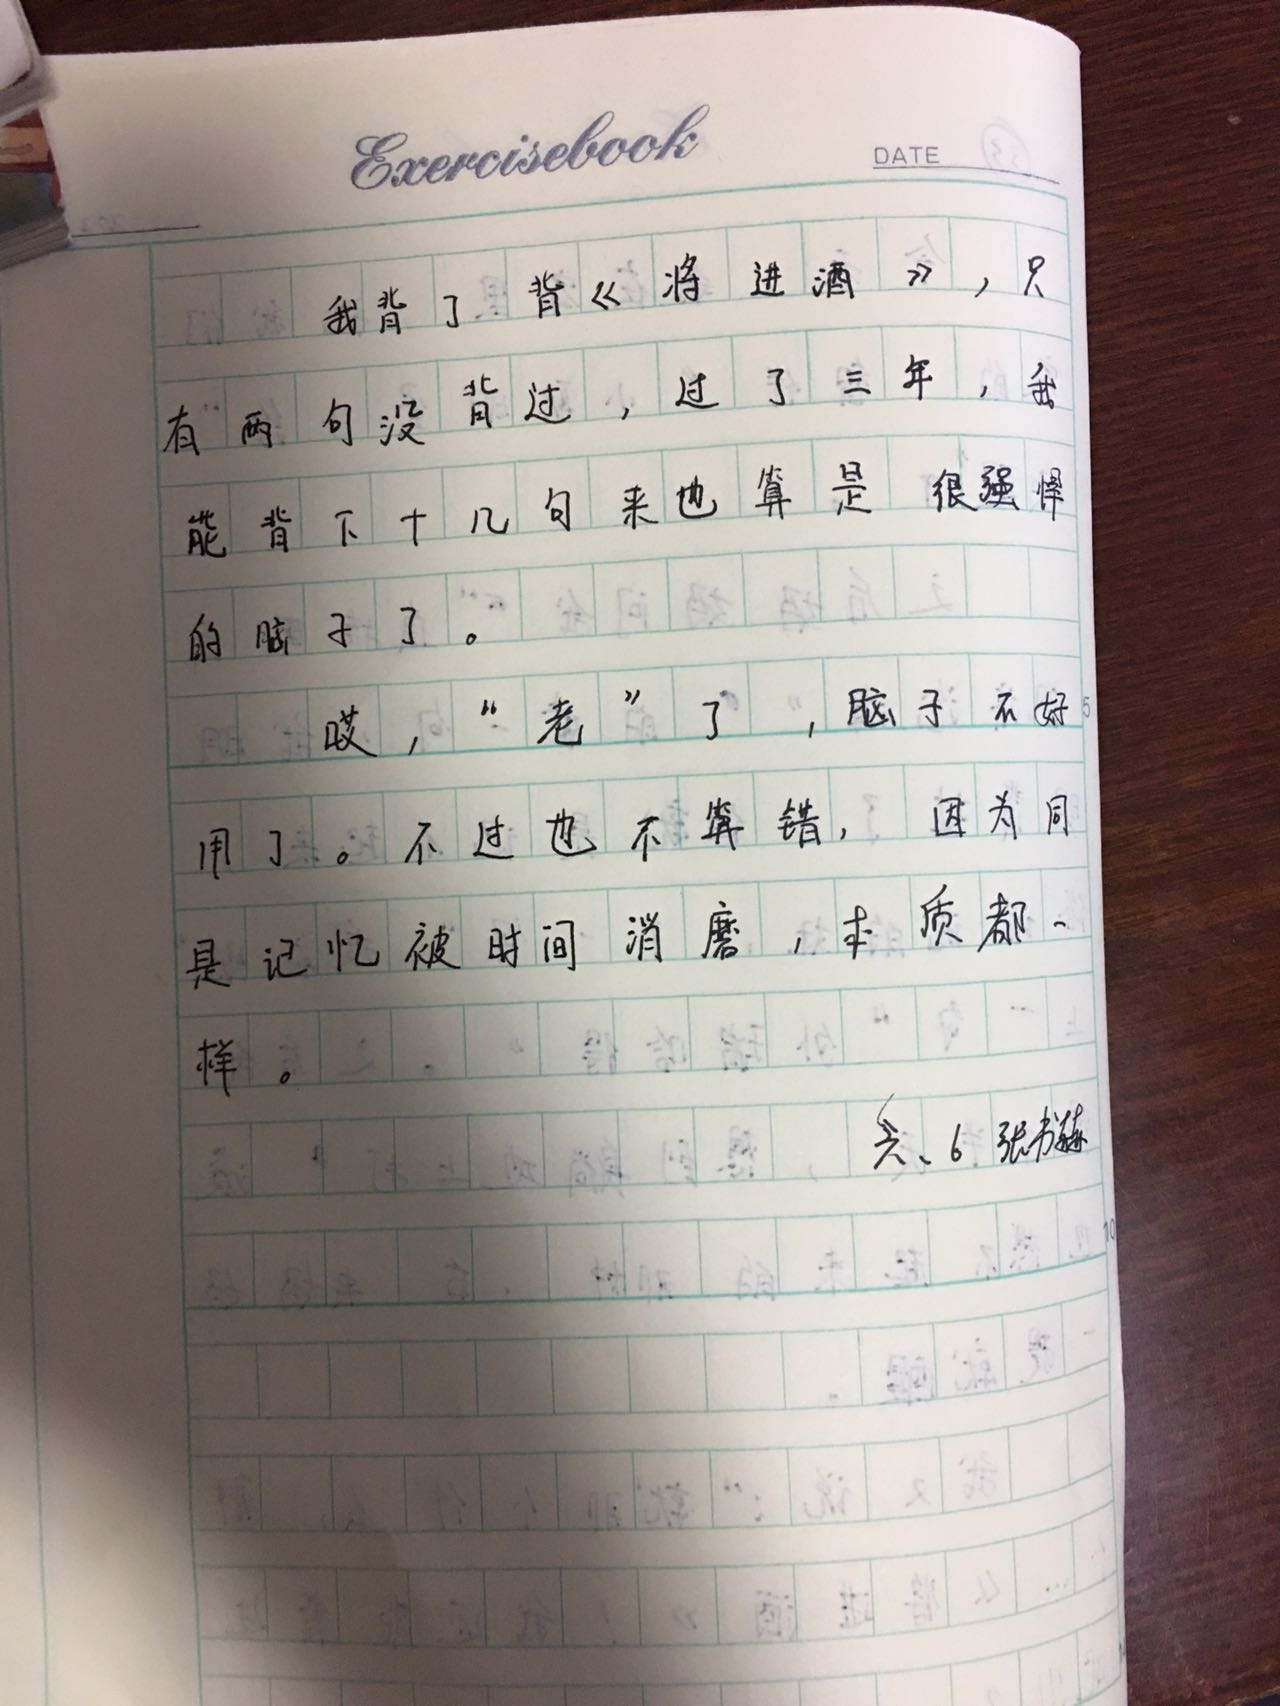 Exercisebook
DATE
我背了背《将进酒》,只
有两句没背过,过了三年,我
能背下十几句来也算是很强悍
的脑子了。
哎,“老”了,脑子不好
5
用了。不过也不算错,因为同
是记忆被时间消磨,本质都一
样。
六、6 张书赫
10